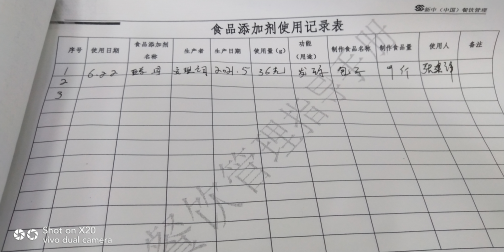 新中(中国)餐饮管理
食品添加剂使用记录表
序号 使用日期 食品添加剂名称 生产者 生产日期 使用量(g) 功能(用途) 制作食品名称 制作食品量 使用人 备注
1 6.22 2021.5 36克 包子 9斤
2
3
餐饮管理指导手册
Shot on X20
vivo dual camera